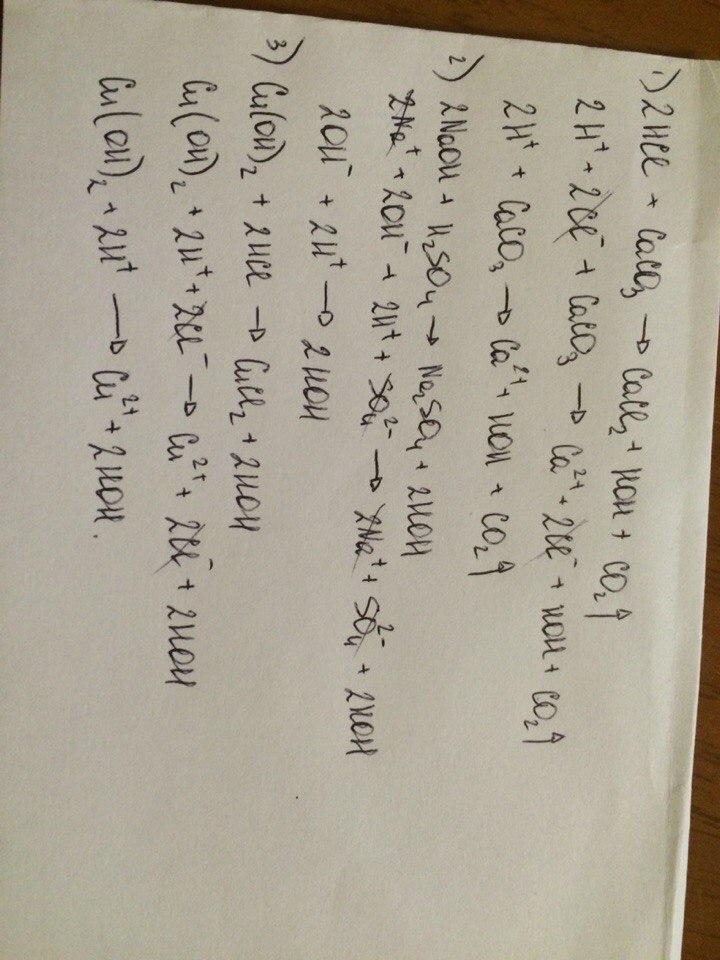 1) 2HCl + CaCO₃ → CaCl₂ + HOH + CO₂↑
2H⁺ + 2Cl⁻ + CaCO₃ → Ca²⁺ + 2Cl⁻ + HOH + CO₂↑
2H⁺ + CaCO₃ → Ca²⁺ + HOH + CO₂↑
2) 2NaOH + H₂SO₄ → Na₂SO₄ + 2HOH
2Na⁺ + 2OH⁻ + 2H⁺ + SO₄²⁻ → 2Na⁺ + SO₄²⁻ + 2HOH
2OH⁻ + 2H⁺ → 2HOH
3) Cu(OH)₂ + 2HCl → CuCl₂ + 2HOH
Cu(OH)₂ + 2H⁺ + 2Cl⁻ → Cu²⁺ + 2Cl⁻ + 2HOH
Cu(OH)₂ + 2H⁺ → Cu²⁺ + 2HOH.